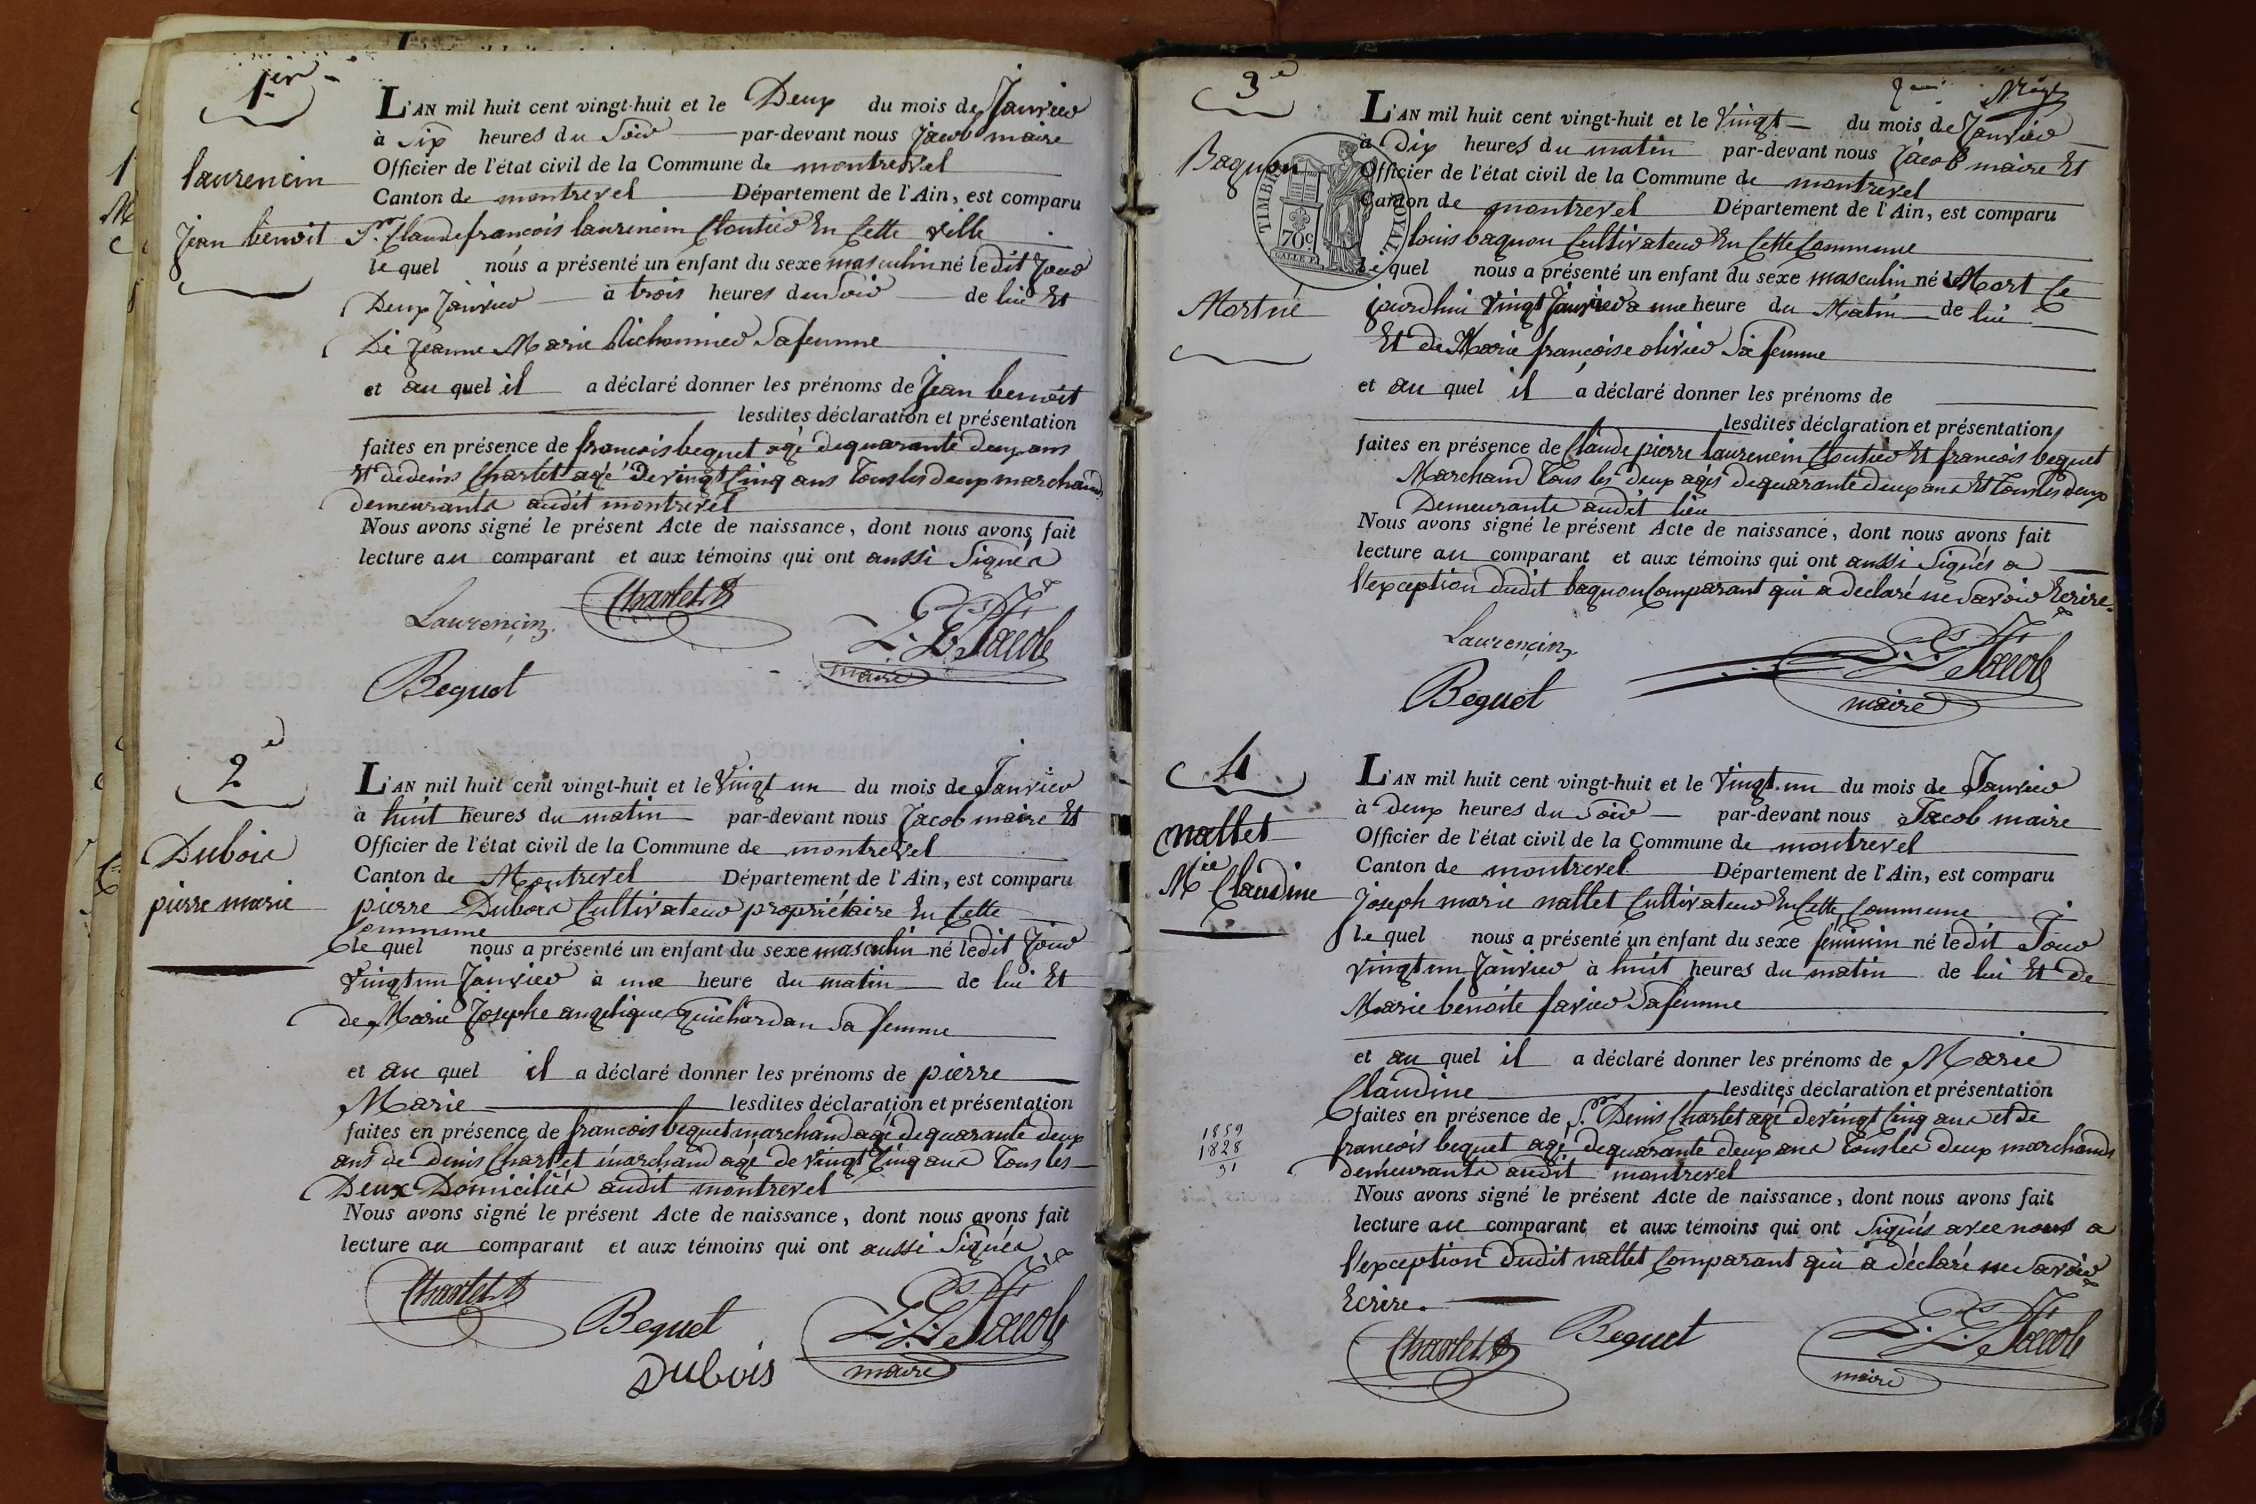 1er
laurencin
Jean benoit
L'AN mil huit cent vingt-huit et le Deux du mois de Janvier
à Six heures du Soir par-devant nous Jacob maire
Officier de l'état civil de la Commune de montrevel
Canton de montrevel Département de l'Ain, est comparu
Sr. Claude françois laurencin Cloutier En Cette ville
le quel nous a présenté un enfant du sexe masculin né le dit Jour
Deux Janvier à trois heures du Soir de lui Et
De Jeanne Marie Sa femme
et au quel il a déclaré donner les prénoms de Jean benoit
lesdites déclaration et présentation
faites en présence de francois bequet agé de quarante deux ans
Et de denis Charlet agé De vingt Cinq ans Tous les deux marchands
demeurants audit montrevel
Nous avons signé le présent Acte de naissance, dont nous avons fait
lecture au comparant et aux témoins qui ont aussi Signés
Laurençin Charlet D
Jacob
Bequet maire
2e
Dubois
pierre marie
L'AN mil huit cent vingt-huit et le Vingt un du mois de Janvier
à huit heures du matin par-devant nous Jacob maire Et
Officier de l'état civil de la Commune de montrevel
Canton de Montrevel Département de l'Ain, est comparu
pierre Dubois Cultivateur propriétaire En Cette
Commune
le quel nous a présenté un enfant du sexe masculin né le dit Jour
Vingt un Janvier à une heure du matin de lui Et
de Marie Josephe angelique Guichardan Sa femme
et au quel il a déclaré donner les prénoms de pierre
Marie lesdites déclaration et présentation
faites en présence de francois bequet marchand agé de quarante deux
ans de denis Charlet marchand agé de vingt Cinq ans Tous les
Deux Domiciliés audit montrevel
Nous avons signé le présent Acte de naissance, dont nous avons fait
lecture au comparant et aux témoins qui ont aussi Signés
Charlet D
Bequet Jacob
Dubois maire
3e
Baquon
Mort né
TIMBRE ROYAL
70c
L'AN mil huit cent vingt-huit et le Vingt du mois de Janvier
à Dix heures du matin par-devant nous Jacob maire Et
Officier de l'état civil de la Commune de montrevel
Canton de montrevel Département de l'Ain, est comparu
louis baquon Cultivateur En Cette Commune
le quel nous a présenté un enfant du sexe masculin né Mort Ce
jourdhui Vingt Janvier à une heure du Matin de lui
Et de Marie françoise olivier Sa femme
et au quel il a déclaré donner les prénoms de
lesdites déclaration et présentation
faites en présence de Claude pierre laurencin Cloutier Et francois bequet
Marchand Tous les deux agés de quarante deux ans Et Tous les deux
Demeurants audit lieu
Nous avons signé le présent Acte de naissance, dont nous avons fait
lecture au comparant et aux témoins qui ont aussi Signés a
l'exception dudit baquon Comparant qui a déclaré ne Savoir Ecrire.
Laurençin
Jacob
Bequet maire
4
nallet
Mie Claudine
L'AN mil huit cent vingt-huit et le Vingt un du mois de Janvier
à Deux heures du Soir par-devant nous Jacob maire
Officier de l'état civil de la Commune de montrevel
Canton de montrevel Département de l'Ain, est comparu
Joseph marie nallet Cultivateur En Cette Commune
le quel nous a présenté un enfant du sexe féminin né le dit Jour
Vingt un Janvier à huit heures du matin de lui Et de
Marie benoite favier Sa femme
et au quel il a déclaré donner les prénoms de Marie
Claudine lesdites déclaration et présentation
faites en présence de Sr. Denis Charlet agé de vingt Cinq ans et de
francois bequet agé de quarante deux ans Tous les deux marchands
demeurants audit montrevel
Nous avons signé le présent Acte de naissance, dont nous avons fait
lecture au comparant et aux témoins qui ont Signés avec nous a
l'exception dudit nallet Comparant qui a déclaré ne Savoir
Ecrire.
Charlet D Bequet Jacob
maire
1859
1828
31